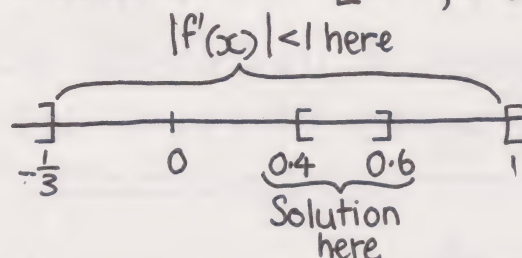 |f'(x)|<1 here
-1/3 0 0.4 0.6 1
Solution
here